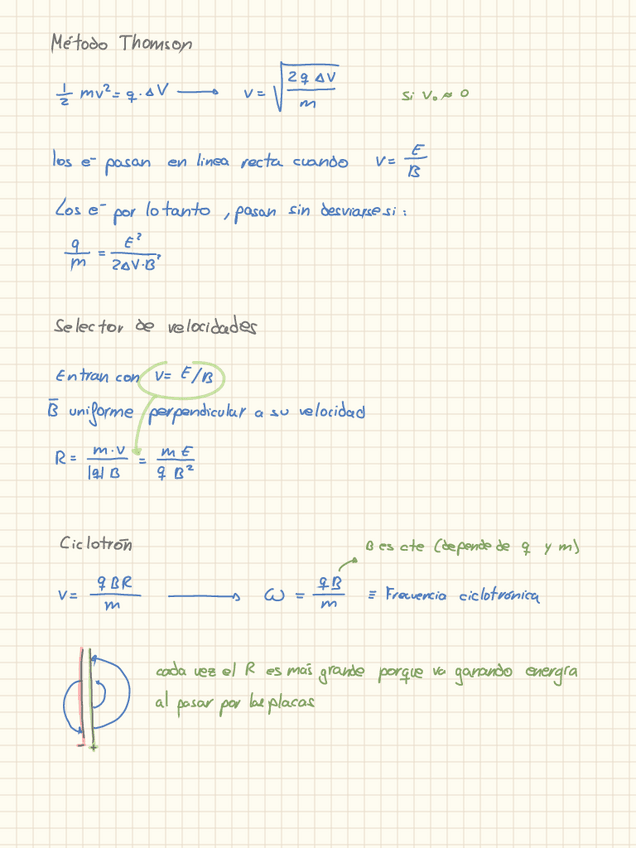 Método Thomson
1/2 mv² = q · ΔV → v = √(2q ΔV / m) si v₀ ≈ 0
los e⁻ pasan en linea recta cuando v = E/B
Los e⁻ por lo tanto, pasan sin desviarse si:
q/m = E² / 2ΔV·B²
Selector de velocidades
Entran con v = E/B
B̄ uniforme perpendicular a su velocidad
R = m·v / |q| B = m E / q B²
Ciclotrón
B es cte (depende de q y m)
v = qBR / m → ω = qB / m ≡ Frecuencia ciclotrónica
cada vez el R es más grande porque va ganando energía
al pasar por las placas
- +